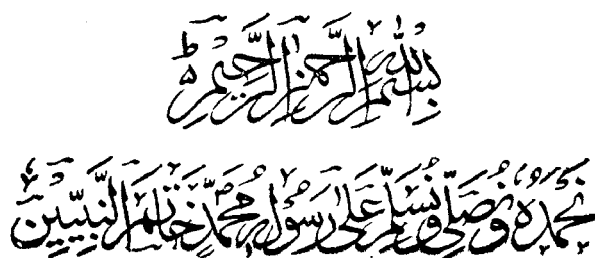 بِسْمِ اللهِ الرَّحْمٰنِ الرَّحِيْمِ ط
نَحْمَدُهٗ وَنُصَلِّی وَنُسَلِّمُ عَلٰی رَسُوْلِهٖ مُحَمَّدٍ خَاتَمِ النَّبِیِّیْنَ